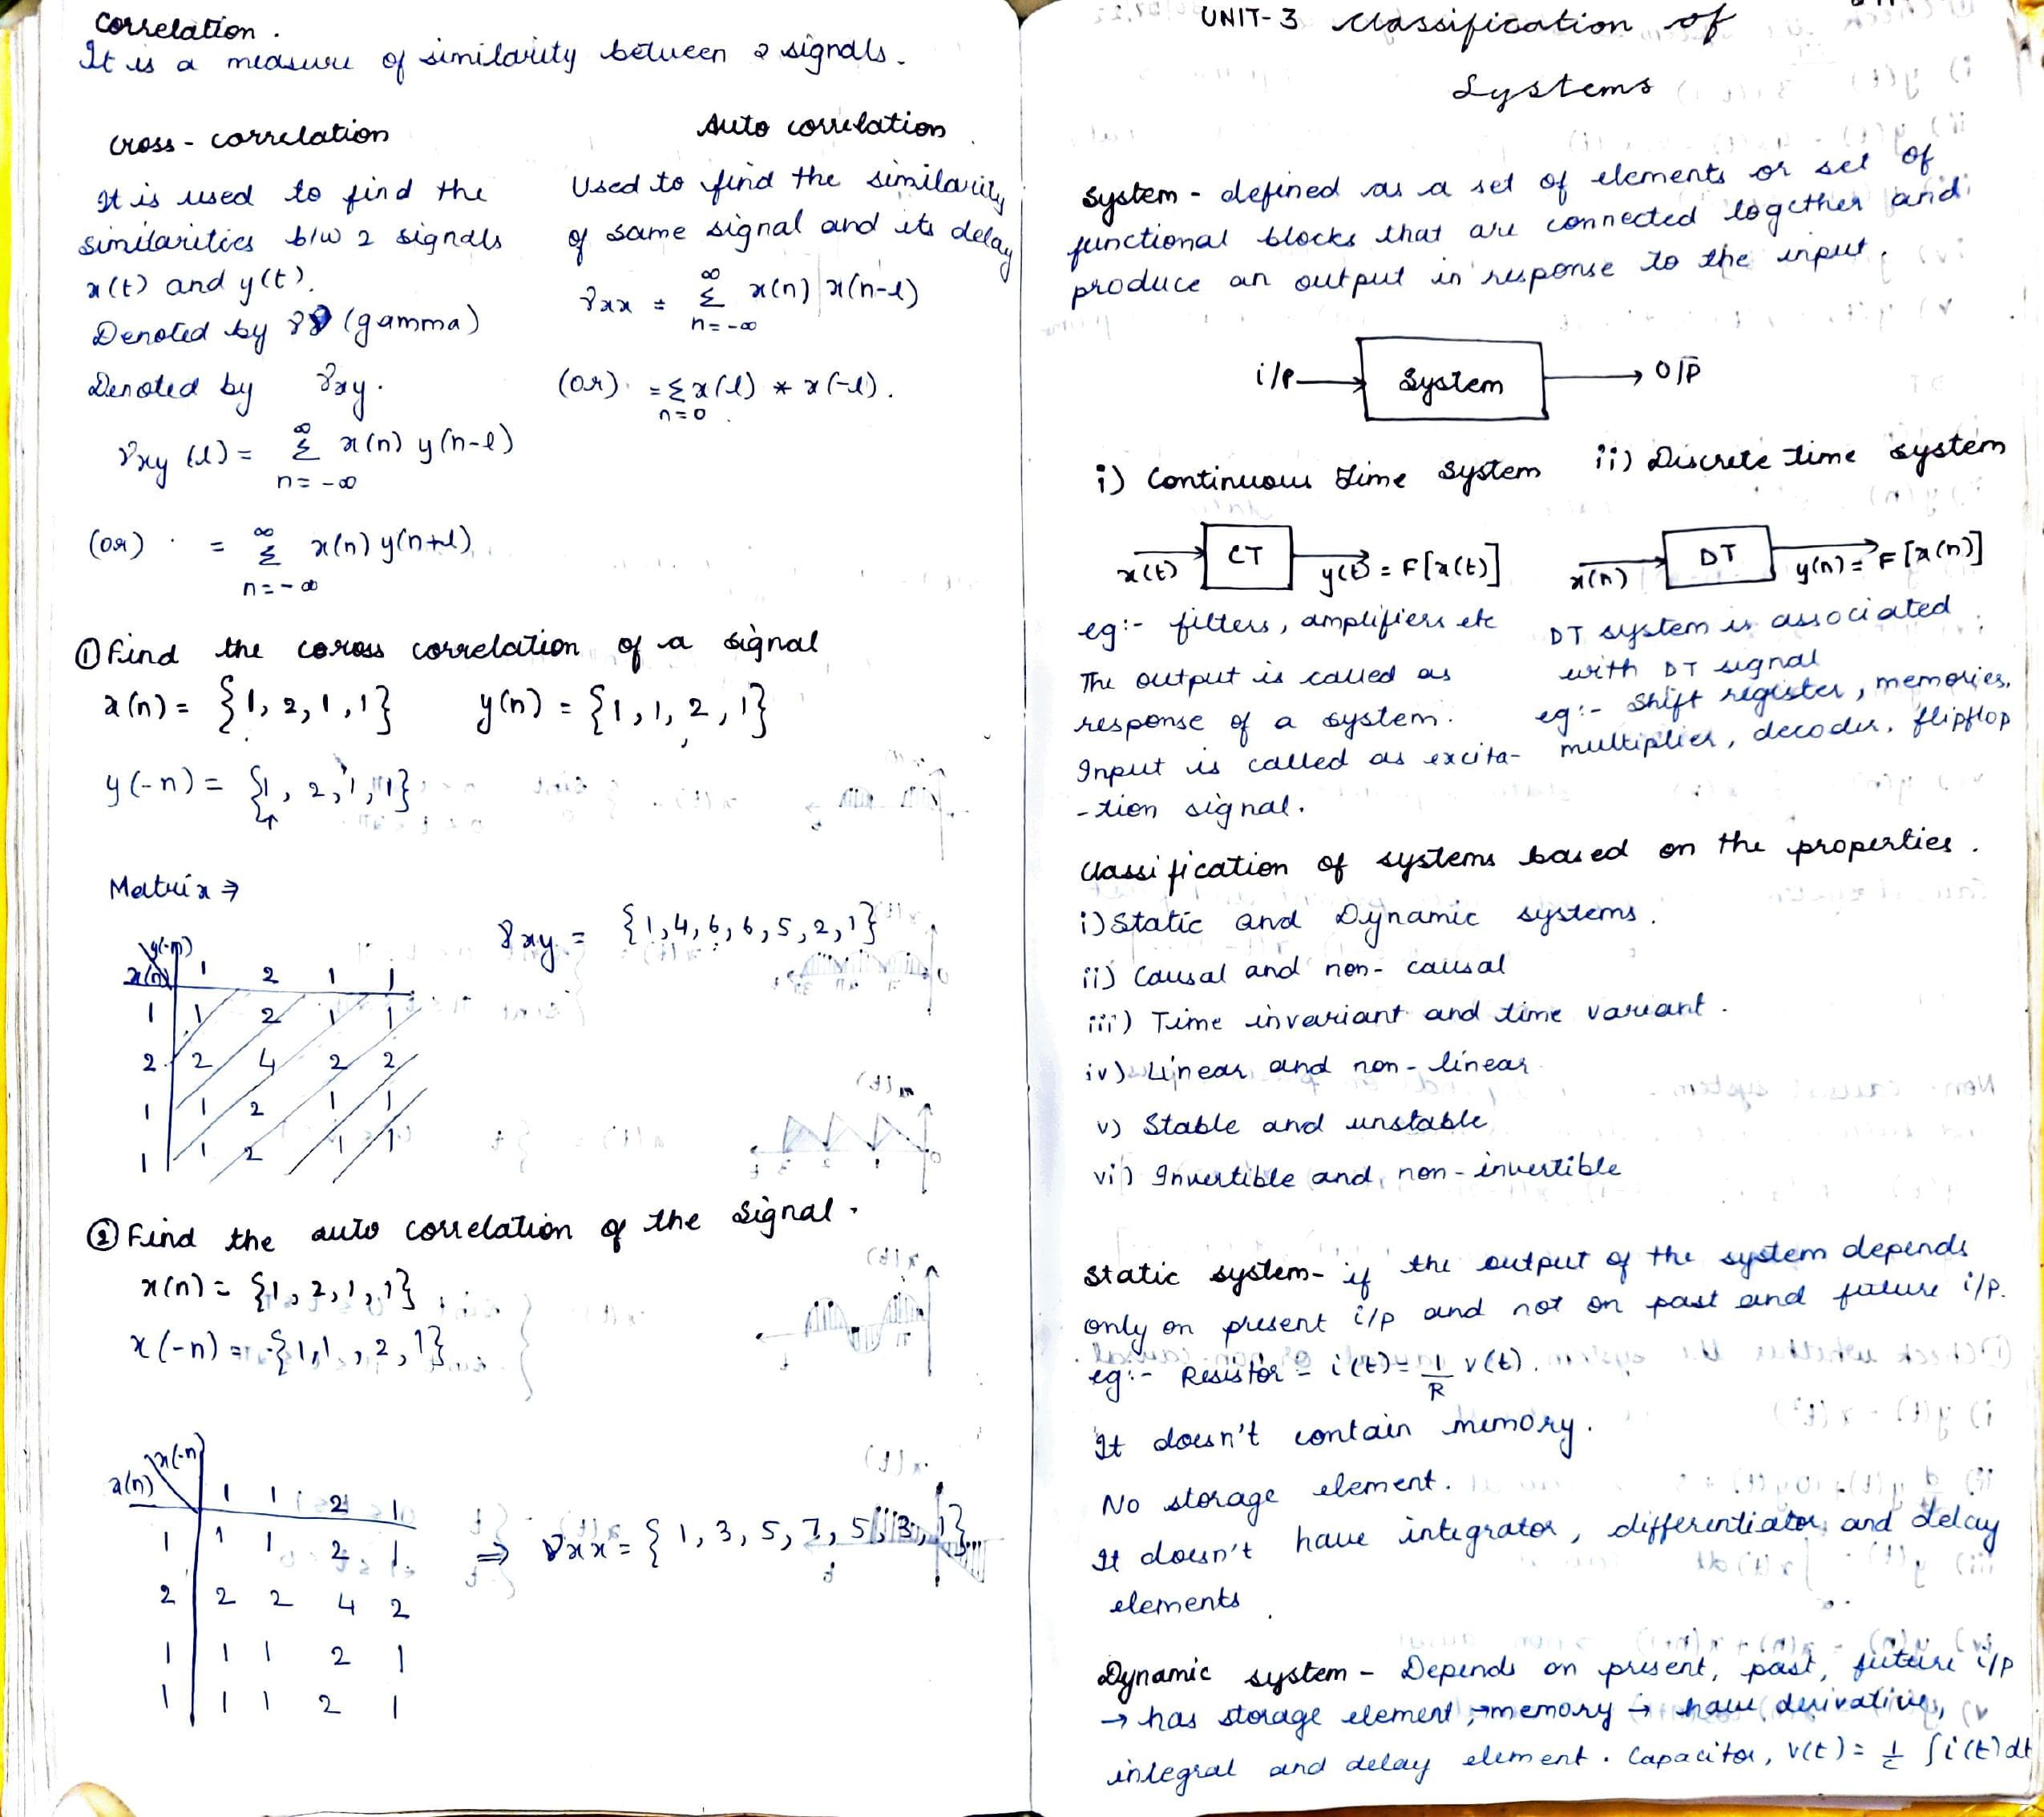 Correlation.
It is a measure of similarity between 2 signals.
Cross-correlation
It is used to find the
similarities b/w 2 signals
x(t) and y(t).
Denoted by γ (gamma)
Denoted by γxy.
γxy (l) = ∞ Σ n=-∞ x(n) y(n-l)
(or) = ∞ Σ n=-∞ x(n) y(n+l)
Auto correlation
Used to find the similarity
of same signal and its delay
γxx = ∞ Σ n=-∞ x(n) x(n-l)
(or) = Σ n=0 x(l) * x(-l).
① Find the coross correlation of a signal
x(n) = {1, 2, 1, 1} y(n) = {1, 1, 2, 1}
y(-n) = {1, 2, 1, 1}
↑
Matrix ⇒
y(-n)
x(n) 1 2 1 1
1 1 2 1 1
2 2 4 2 2
1 1 2 1 1
1 1 2 1 1
γxy = {1, 4, 6, 6, 5, 2, 1}
② Find the auto correlation of the signal.
x(n) = {1, 2, 1, 1}
x(-n) = {1, 1, 2, 1}
x(-n)
x(n) 1 1 2 1
1 1 1 2 1
2 2 2 4 2
1 1 1 2 1
1 1 1 2 1
⇒ γxx = {1, 3, 5, 7, 5, 3, 1}
UNIT-3 Classification of
Systems
System - defined as a set of elements or set of
functional blocks that are connected together and
produce an output in response to the input.
i/p → System → O/P
i) Continuous time system
x(t) CT y(t) = F[x(t)]
eg:- filters, amplifiers etc
The output is called as
response of a system.
Input is called as excita-
-tion signal.
ii) Discrete time system
x(n) DT y(n) = F[x(n)]
DT system is associated
with DT signal
eg:- Shift register, memories,
multiplier, decoder, flipflop
Classification of systems based on the properties.
i) Static and Dynamic systems.
ii) Causal and non-causal
iii) Time invariant and time variant.
iv) Linear and non-linear
v) Stable and unstable
vi) Invertible and non-invertible
Static system- if the output of the system depends
only on present i/p and not on past and future i/p.
eg:- Resistor - i(t) = 1/R v(t).
It doesn't contain memory.
No storage element.
It doesn't have integrator, differentiator and delay
elements
Dynamic system - Depends on present, past, future i/p
→ has storage element, → memory → have derivative,
integral and delay element. Capacitor, v(t) = 1/c ∫i(t)dt